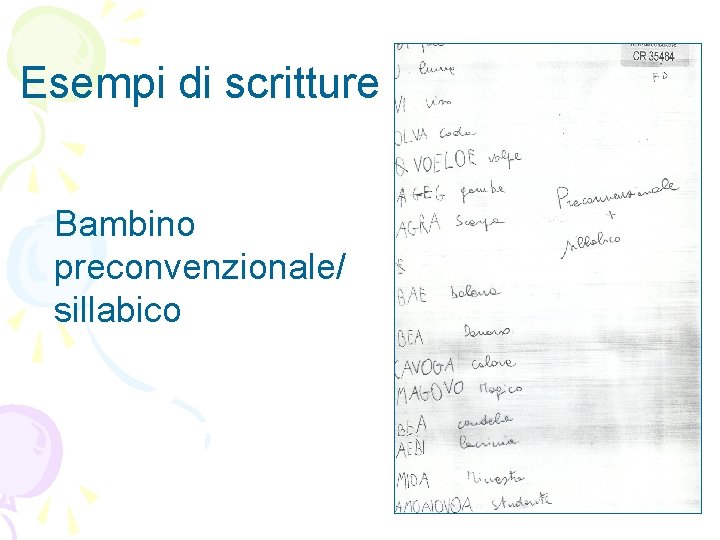 Esempi di scritture
Bambino
preconvenzionale/
sillabico
CR 35484
FD
VI vino
OLVA coda
VOELOE volpe
AGEG gambe
AGRA Scarpa
Preconvenzionale
+
sillabico
BAE balena
BEA
CAVOGA calore
MAGOVO Magico
BEA candela
AEBI
MIDA Minestra
AMOAIOVOA studenti